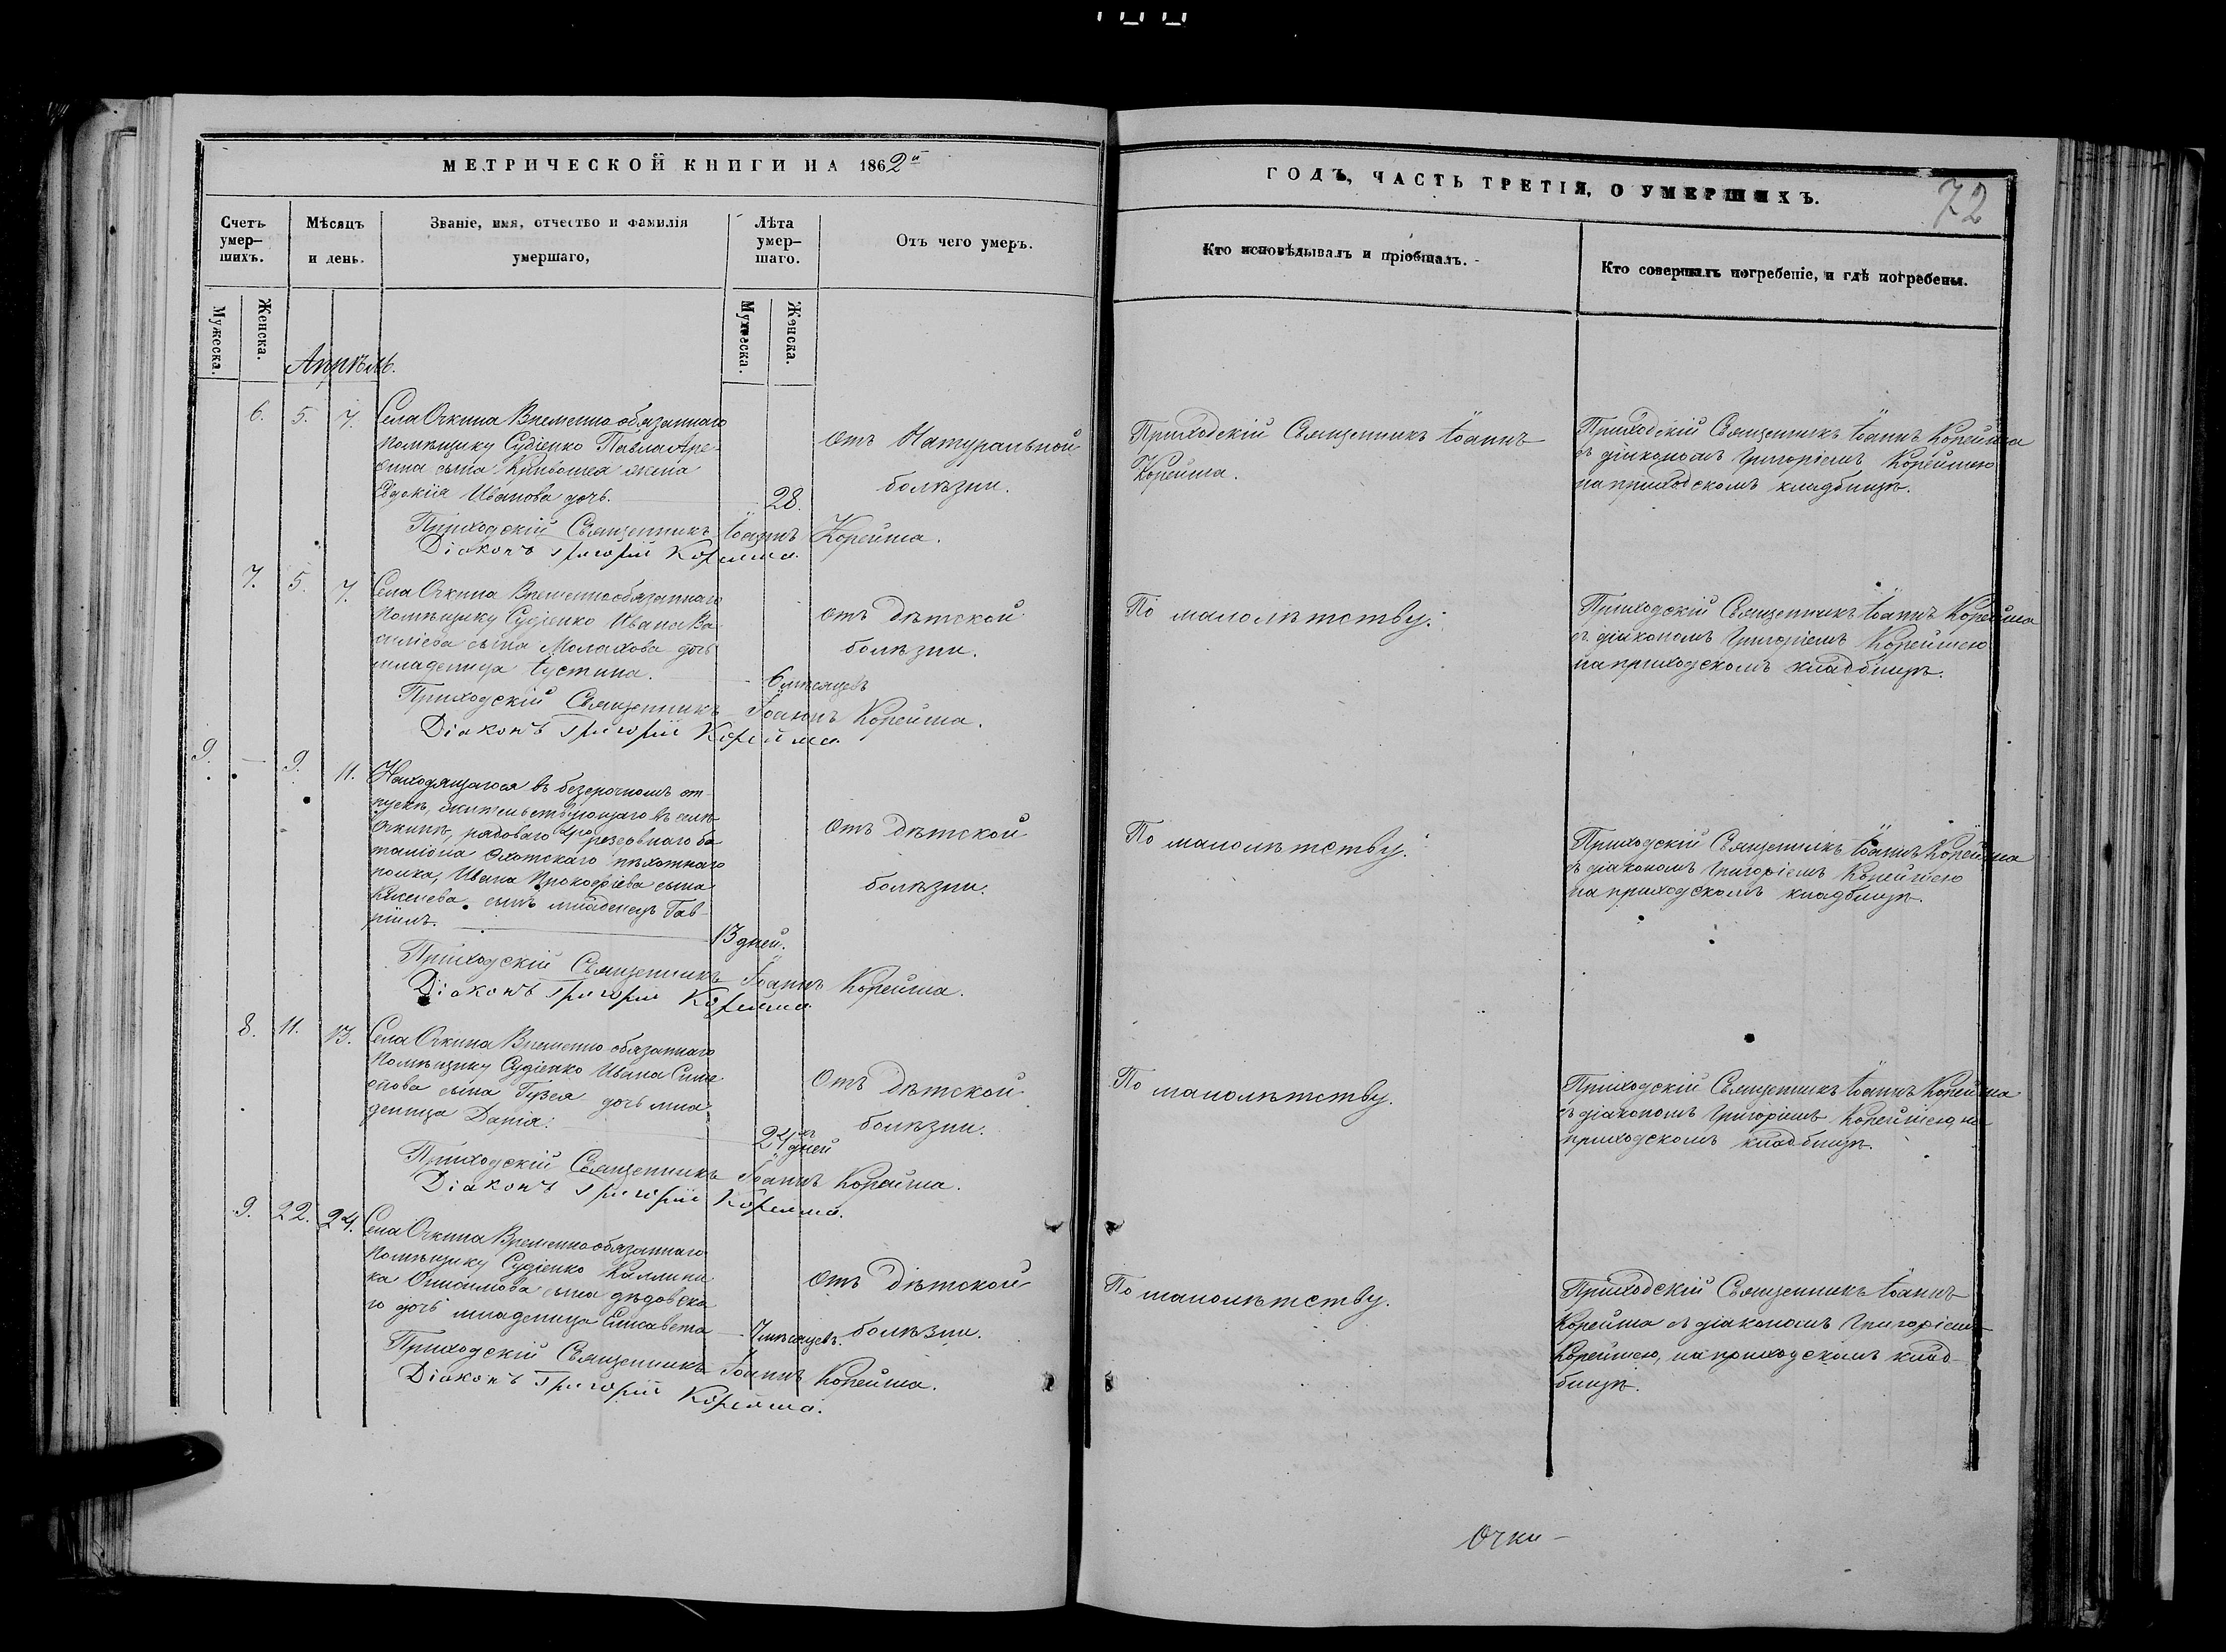 МЕТРИЧЕСКОЙ КНИГИ НА 1862й
Счетъ умер-шихъ.
Мѣсяцъ и день.
Званіе, имя, отчество и фамилія умершаго,
Лѣта умер-шаго.
Отъ чего умеръ.
Мужеска.
Женска.
Мужеска.
Женска.
Апрѣль.
6. 5. 7.
Села Очкина Временно обязаннаго
Помѣщику Судіенко Павла Аре-
фина сына Кривошея жена
Евдокія Иванова дочь.
28.
отъ Натуральной
болѣзни.
Приходскій Священникъ Іоаннъ Корейша.
Діаконъ Григорій Корейша.
7. 5. 7.
Села Очкина Временнообязаннаго
Помѣщику Судіенко Ивана Ва-
силіева сына Молахова дочь
младенца Іустина.
6 мѣсяцевъ
отъ дѣтской
болѣзни.
Приходскій Священникъ Іоаннъ Корейша.
Діаконъ Григорій Корейша.
9. — 9. 11.
Находящагося въ безсрочномъ от-
пускѣ, жительствующаго въ селѣ
Очкинѣ, рядоваго резервнаго ба
таліона Охотскаго пѣхотнаго
полка, Ивана Прокофіева сына
сынъ младенецъ Гав-
ріилъ.
13 дней.
отъ дѣтской
болѣзни.
Приходскій Священникъ Іоаннъ Корейша.
Діаконъ Григорій Корейша.
8. 11. 13.
Села Очкина Временно обязаннаго
Помѣщику Судіенко Ивана Симе
онова сына Гузея дочь мла
деница Дарія.
24хъ дней
отъ дѣтской
болѣзни.
Приходскій Священникъ Іоаннъ Корейша.
Діаконъ Григорій Корейша.
9. 22. 24.
Села Очкина Временнообязаннаго
Помѣщику Судіенко Каллини
ка сына Дѣдовска
го дочь младеница Елисавета
7 мѣсяцевъ.
отъ дѣтской
болѣзни.
Приходскій Священникъ Іоаннъ Корейша.
Діаконъ Григорій Корейша.
ГОДЪ, ЧАСТЬ ТРЕТІЯ, О УМЕРШИХЪ.
72
Кто исповѣдывалъ и пріобщалъ.
Кто совершалъ погребеніе, и гдѣ погребены.
Приходскій Священникъ Іоаннъ
Корейша.
Приходскій Священникъ Іоаннъ Корейша
съ діакономъ Григоріемъ Корейшею
на приходскомъ кладбищѣ.
По малолѣтству.
Приходскій Священникъ Іоаннъ Корейша
съ діакономъ Григоріемъ Корейшею
на приходскомъ кладбищѣ.
По малолѣтству.
Приходскій Священникъ Іоаннъ Корейша
съ діакономъ Григоріемъ Корейшею
на приходскомъ кладбищѣ.
По малолѣтству.
Приходскій Священникъ Іоаннъ Корейша
съ діакономъ Григоріемъ Корейшею, на
приходскомъ кладбищѣ.
По малолѣтству.
Приходскій Священникъ Іоаннъ
Корейша съ діакономъ Григоріемъ
Корейшею, на приходскомъ клад-
бищѣ.
Очки-